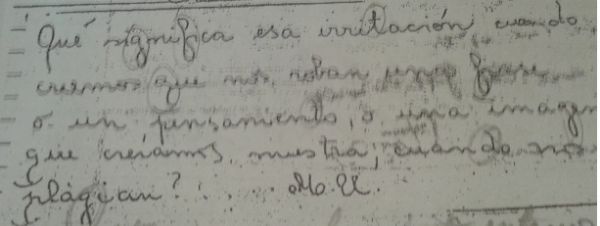 ¿Qué significa esa irritación cuando
creemos que nos roban una frase
o un pensamiento, o una imagen
que creíamos nuestra; cuando nos
plagian? . . . . . . M. U.